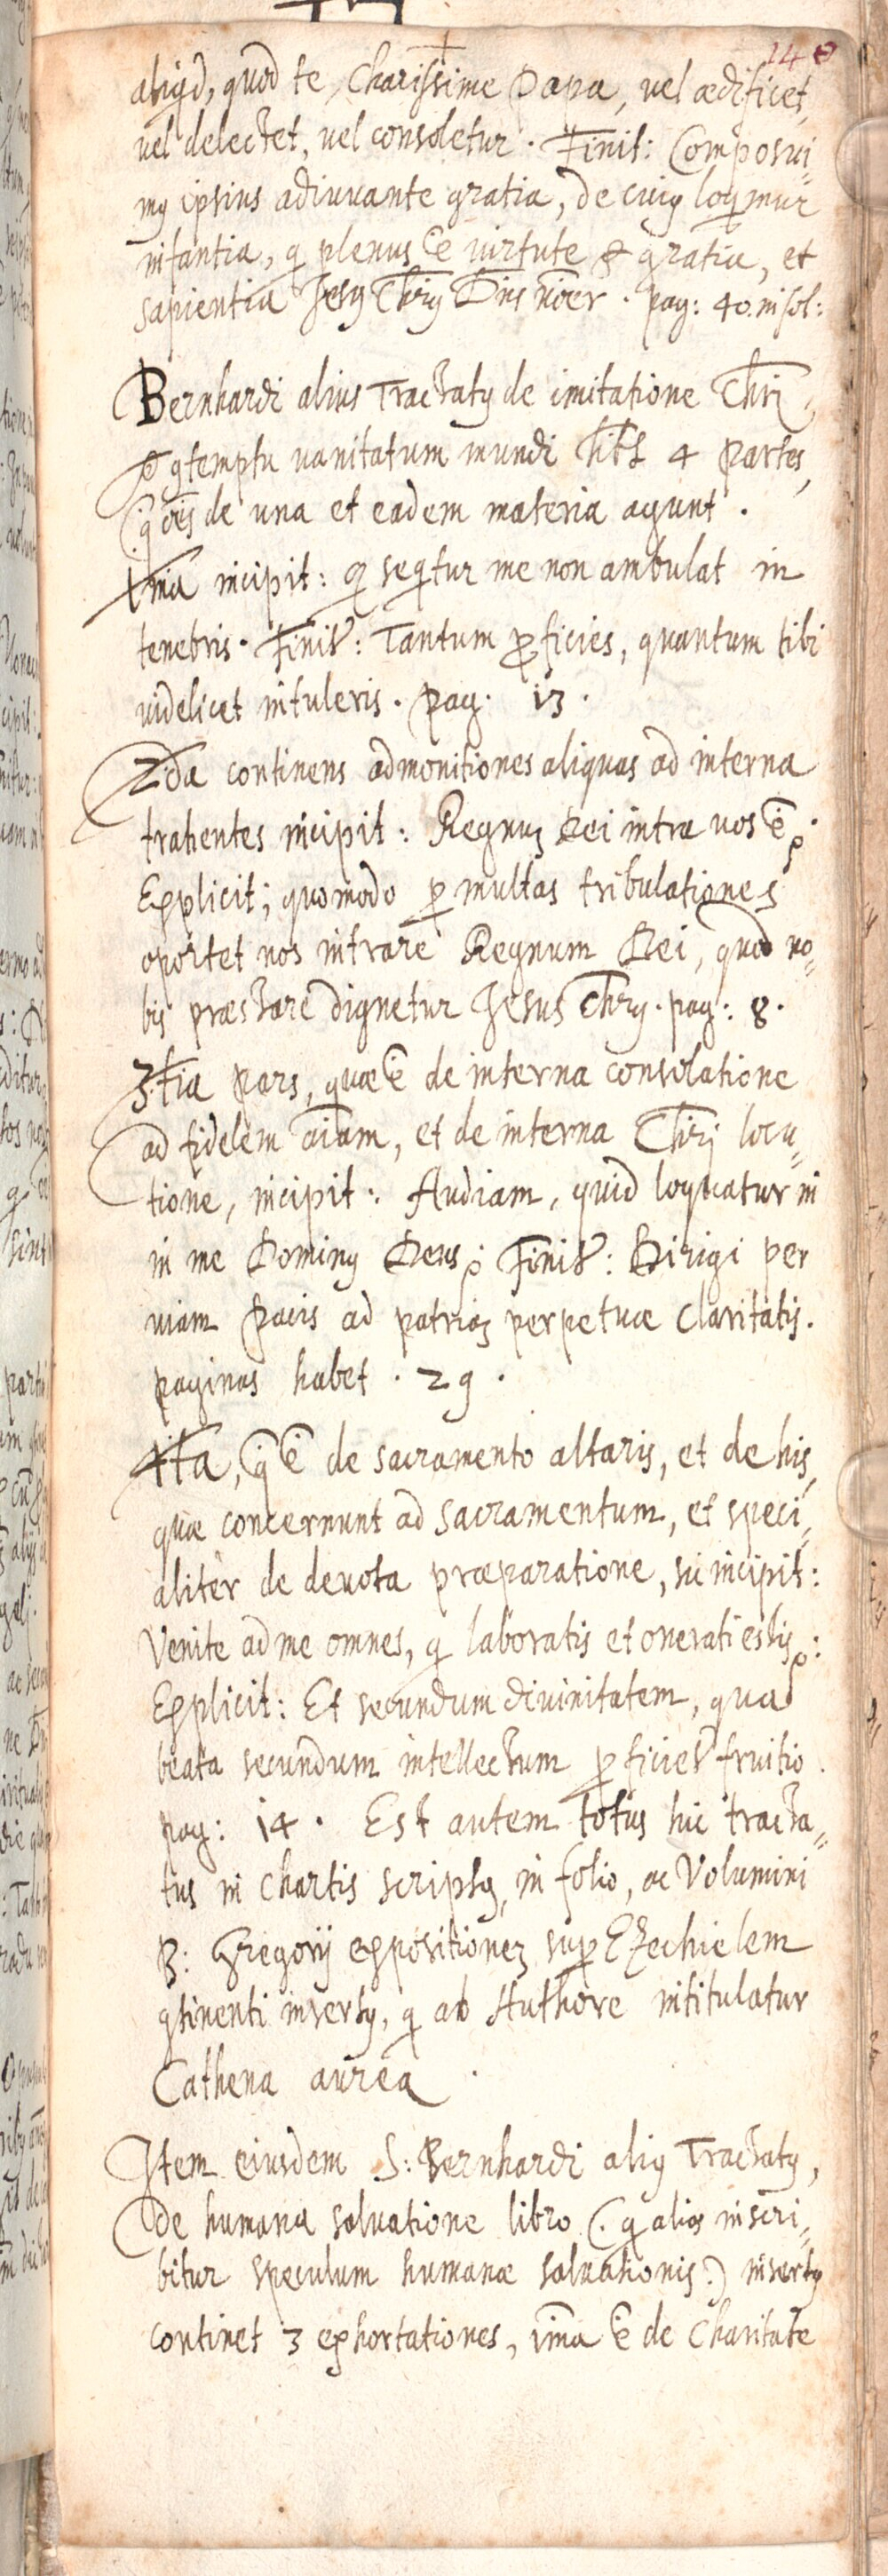 148
aliqd, quod te, Charissime Papa, vel ædificet,
vel delectet, vel consoletur. Finit: Composui-
mꝰ ipsius adiuvante gratia, de cuiꝰ loqmur
infantia, q plenus ē virtute & gratia, et
sapientia Jesꝰ Chrꝰ Dns nr̄er. pag: 40. in fol:
Bernhardi alius Tractatꝰ de imitatione Chri,
& ꝯtemptu vanitatum mundi hēt 4 Partes,
q oēs de una et eadem materia agunt.
1ma incipit: q seqtur me non ambulat in
tenebris. Finitr: Tantum ꝓficies, quantum tibi
videlicet intuleris. pag. 13.
2da continens admonitiones aliquas ad interna
trahentes incipit: Regnuꝫ Dei intra vos ē.
Explicit; quomodo ꝑ multas tribulationes
oportet nos intrare Regnum Dei, quod no-
bis præstare dignetur Jesus Chrꝰ. pag: 8.
3.tia pars, quæ ē de interna consolatione
ad fidelem aīam, et de interna Chrj locu-
tione, incipit: Audiam, quid loquatur in
in me Dominꝰ Deus: Finitr: Dirigi per
viam Pacis ad patriaꝫ perpetuæ claritatis.
paginas habet. 29.
4ta, q ē de sacramento altaris, et de his,
quæ concernunt ad Sacramentum, et speci-
aliter de devota præparatione, sic incipit:
Venite ad me omnes, q laboratis et onerati estis:
Explicit: Et secundum divinitatem, qua
beata secundum intellectum ꝑficietr fruitio.
pag: 14. Est autem totus hic tracta-
tus in chartis scriptꝰ, in folio, ac Volumini
B: Gregorij expositioneꝫ suꝑ Ezechielem
ꝯtinenti insertꝰ, q ab Authore intitulatur
Cathena aurea.
Item eiusdem S: Bernhardi aliꝰ Tractatꝰ,
de humana salvatione libro (. q alias inscri-
bitur speculum humanæ salvationis.) insertꝰ
continet 3 exhortationes, 1ma ē de Charitate